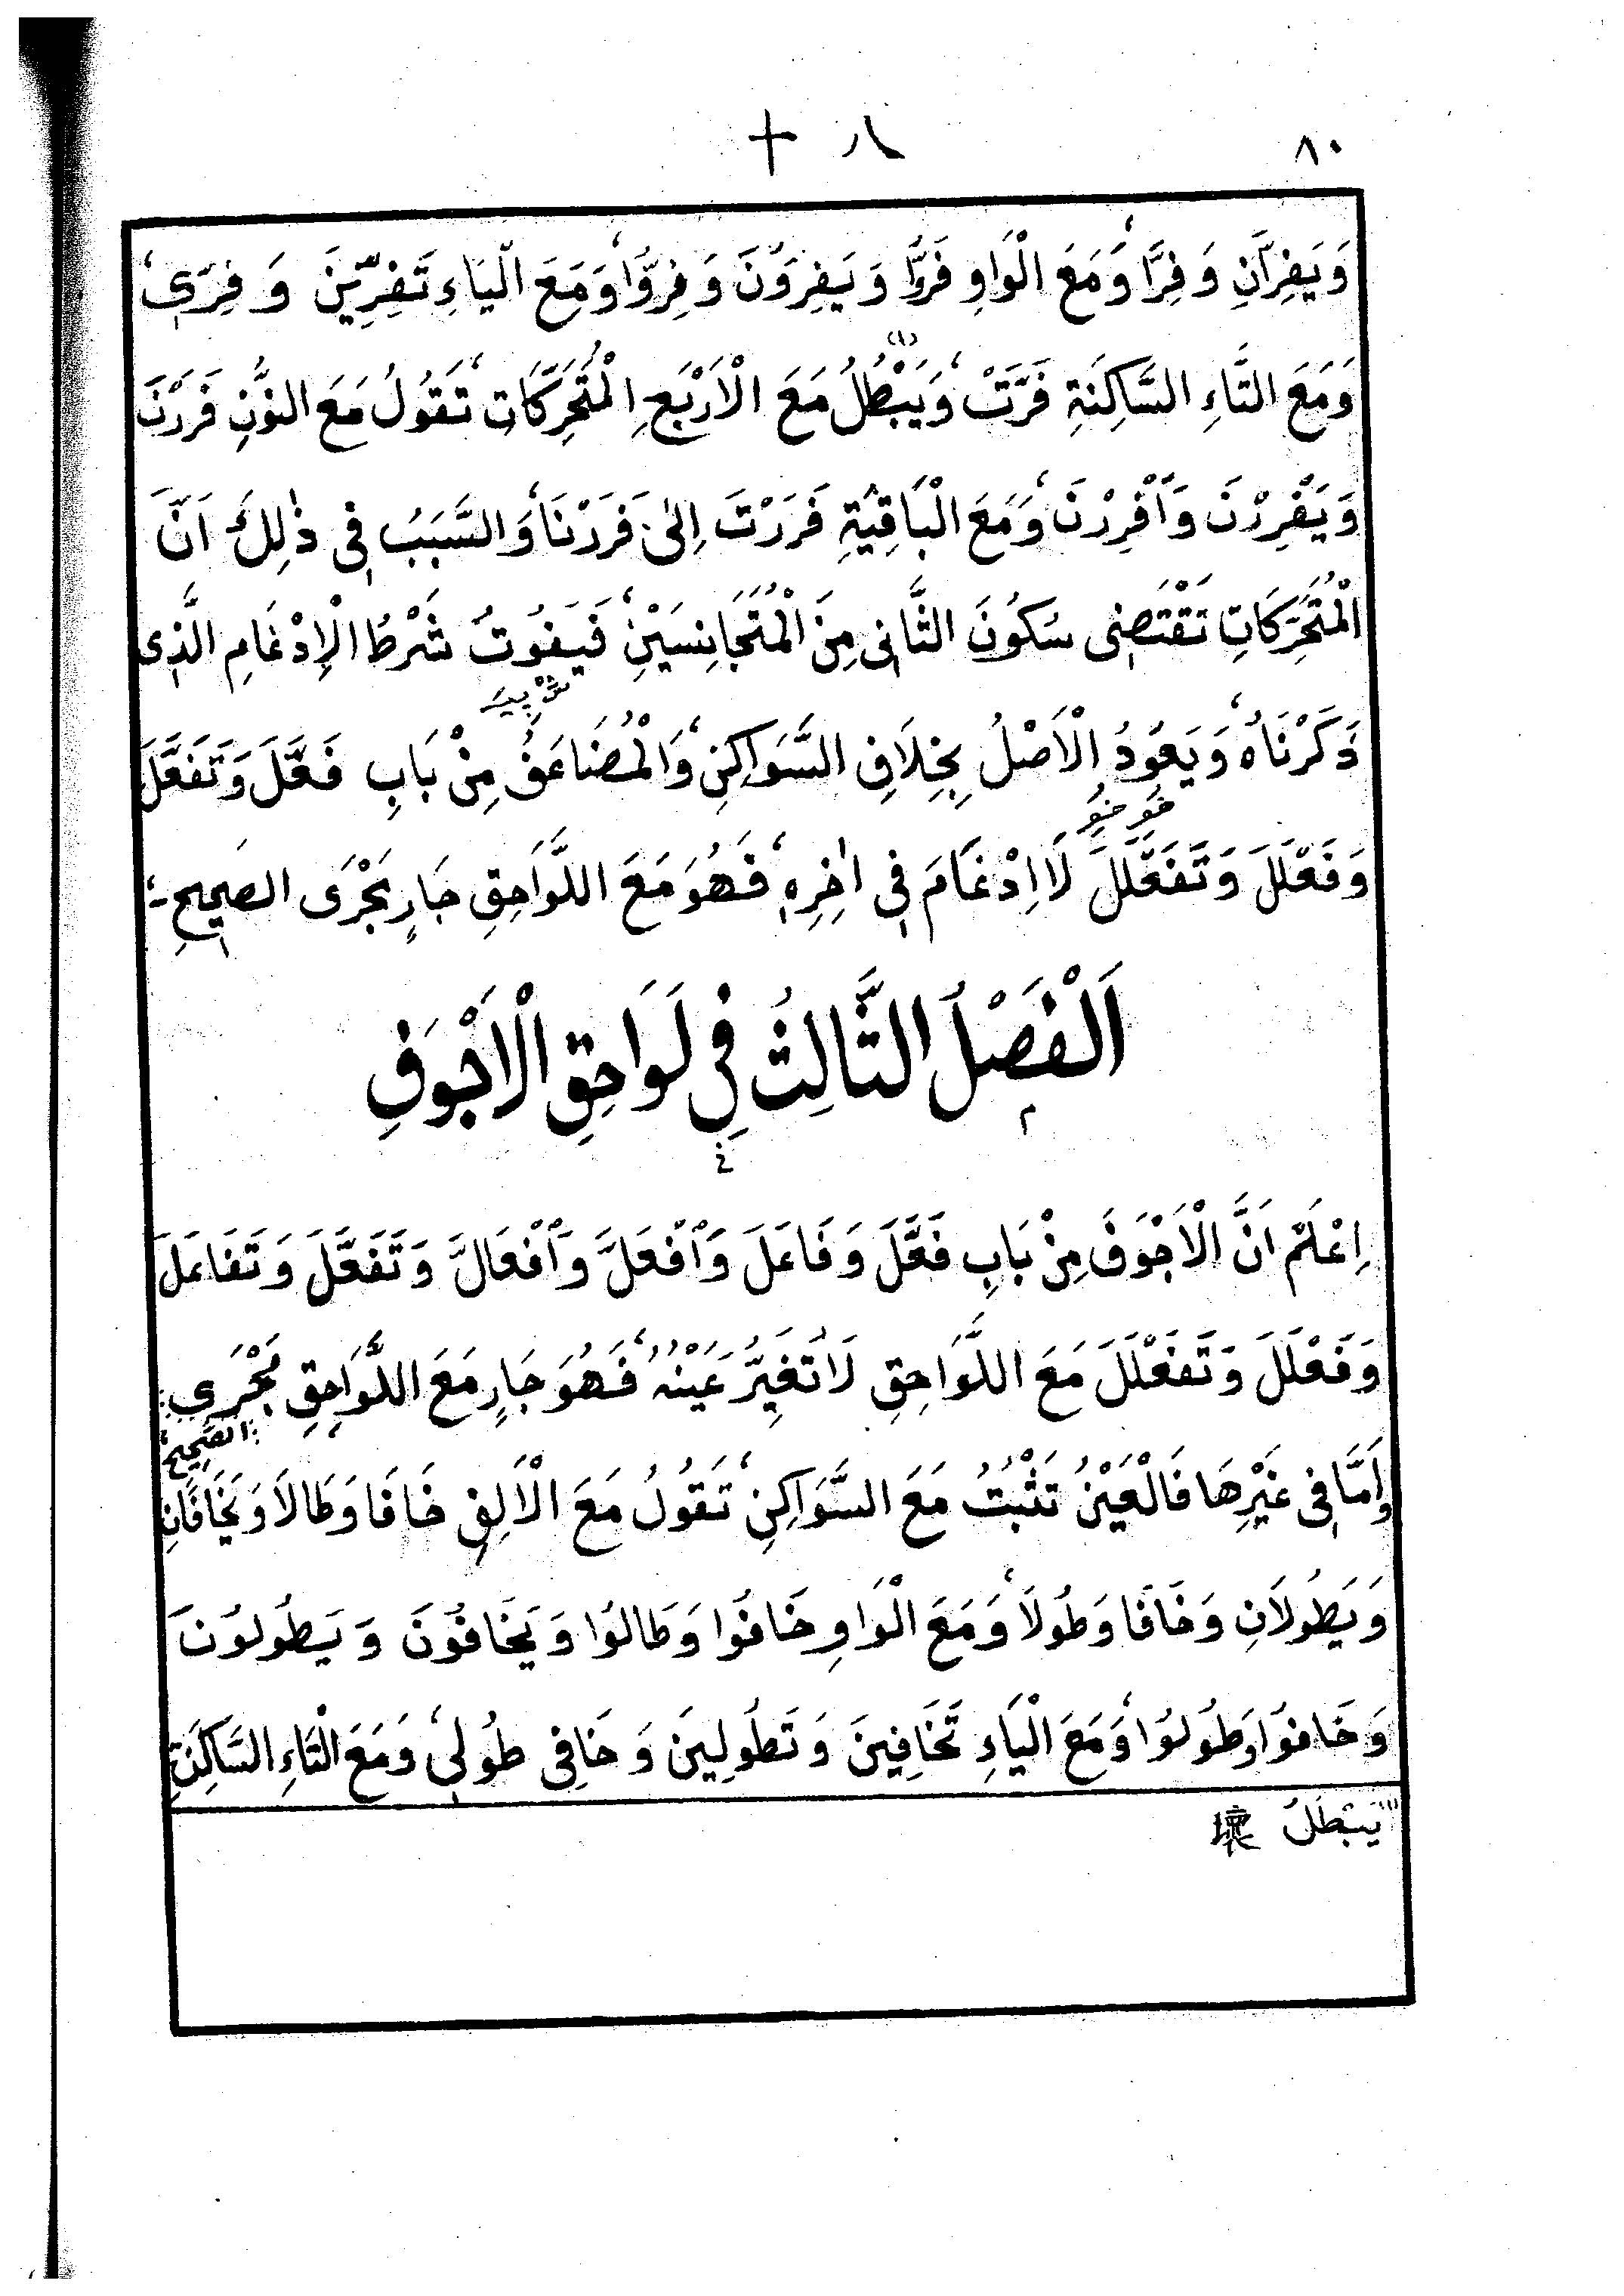 ٨٠
وَيَفِرَّانِ وَفِرَّا، وَمَعَ الْوَاوِ فَرُّوا وَيَفِرُّونَ وَفِرُّوا، وَمَعَ الْيَاءِ تَفِرِّينَ وَفِرِّي،
وَمَعَ التَّاءِ السَّاكِنَةِ فَرَّتْ، وَيَبْطُلُ (١) مَعَ الْاَرْبَعِ الْمُتَحَرِّكَاتِ، تَقُولُ مَعَ النُّونِ فَرَرْنَ
وَيَفْرِرْنَ وَاَفْرِرْنَ، وَمَعَ الْبَاقِيَةِ فَرَرْتَ اِلىٰ فَرَرْنَا، وَالسَّبَبُ فِي ذٰلِكَ اَنَّ
الْمُتَحَرِّكَاتِ تَقْتَضِي سُكُونَ الثَّانِي مِنَ الْمُتَجَانِسَيْنِ، فَيَفُوتُ شَرْطُ الْاِدْغَامِ الَّذِي
ذَكَرْنَاهُ، وَيَعُودُ الْاَصْلُ بِخِلَافِ السَّوَاكِنِ، وَالْمُضَاعَفُ مِنْ بَابِ فَعَّلَ وَتَفَعَّلَ
وَفَعْلَلَ وَتَفَعْلَلَ لَا اِدْغَامَ فِي اٰخِرِهِ، فَهُوَ مَعَ اللَّوَاحِقِ جَارٍ مَجْرَى الصَّحِيحِ؛
اَلْفَصْلُ الثَّالِثُ فِي لَوَاحِقِ الْاَجْوَفِ
اِعْلَمْ اَنَّ الْاَجْوَفَ مِنْ بَابِ فَعَّلَ وَفَاعَلَ وَاَفْعَلَّ وَاَفْعَالَّ وَتَفَعَّلَ وَتَفَاعَلَ
وَفَعْلَلَ وَتَفَعْلَلَ مَعَ اللَّوَاحِقِ لَا تُغَيِّرُ عَيْنُهُ، فَهُوَ جَارٍ مَعَ اللَّوَاحِقِ مَجْرَى
الصَّحِيحِ؛
وَاَمَّا فِي غَيْرِهَا فَالْعَيْنُ تَثْبُتُ مَعَ السَّوَاكِنِ، تَقُولُ مَعَ الْاَلِفِ خَافَا وَطَالَا وَيَخَافَانِ
وَيَطُولَانِ وَخَافَا وَطُولَا، وَمَعَ الْوَاوِ خَافُوا وَطَالُوا وَيَخَافُونَ وَيَطُولُونَ
وَخَافُوا وَطُولُوا، وَمَعَ الْيَاءِ تَخَافِينَ وَتَطُولِينَ وَخَافِي طُولِي، وَمَعَ التَّاءِ السَّاكِنَةِ
(١) يَبْطُلُ 壞